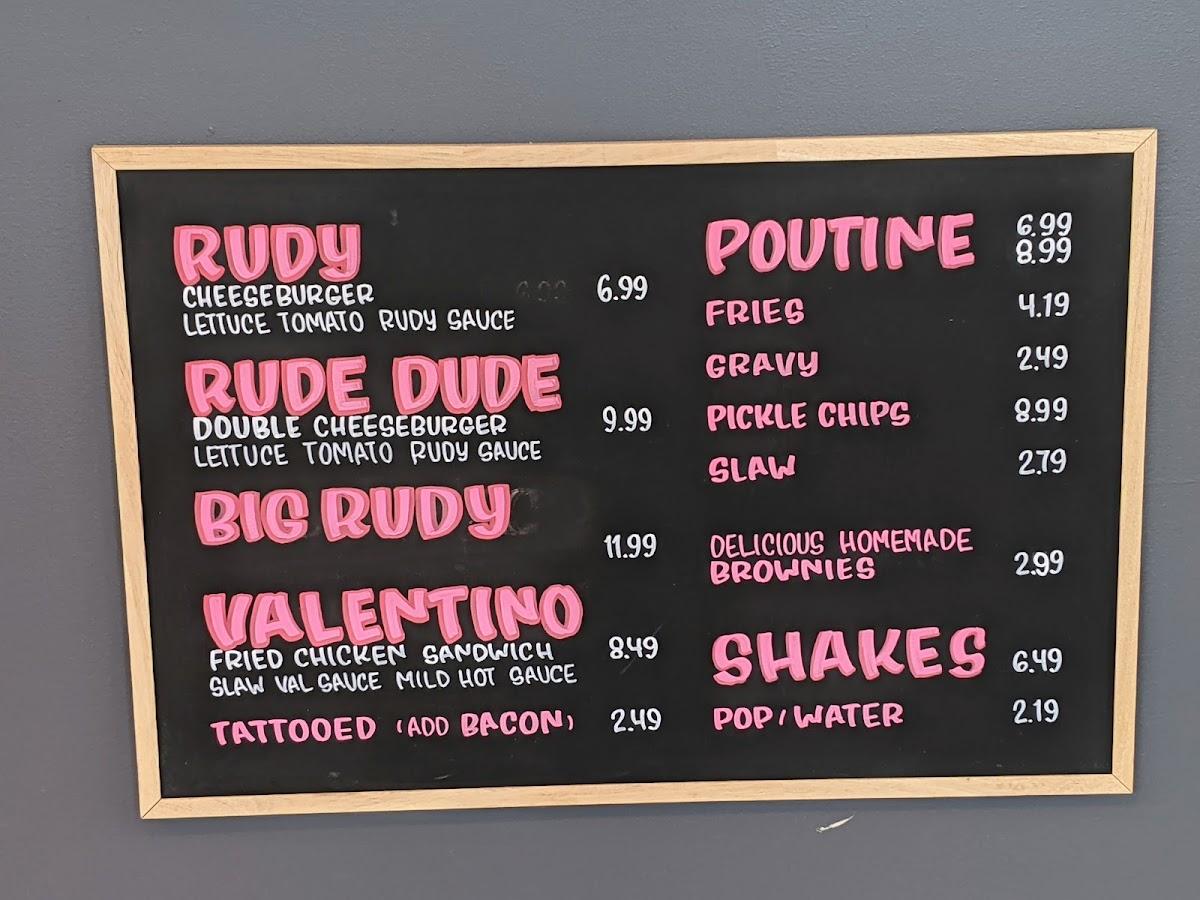 RUDY
CHEESEBURGER
6.99
LETTUCE TOMATO RUDY SAUCE
RUDE DUDE
DOUBLE CHEESEBURGER
9.99
LETTUCE TOMATO RUDY SAUCE
BIG RUDY
11.99
VALENTINO
FRIED CHICKEN SANDWICH
8.49
SLAW VAL SAUCE MILD HOT SAUCE
TATTOOED (ADD BACON) 2.49
POUTINE 6.99
8.99
FRIES 4.19
GRAVY 2.49
PICKLE CHIPS 8.99
SLAW 2.79
DELICIOUS HOMEMADE
BROWNIES 2.99
SHAKES 6.49
POP/WATER 2.19